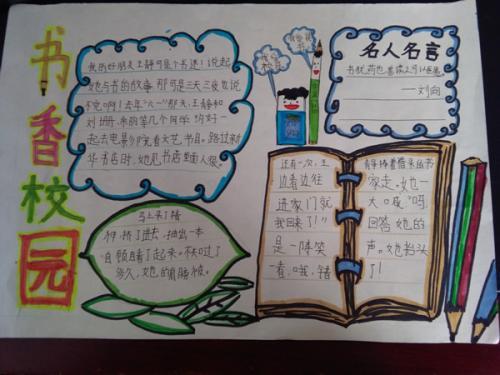 书香校园
我的好朋友王静可是个书迷！说起
她与书的故事那可是三天三夜也说
不完啊！去年“六一”那天，王静和
刘珊，朱丽等几个同学约好一
起去电影院看文艺节目。路过新
华书店时，她见书店里面人很
名人名言
书犹药也，善读之可以医愚。
——刘向
马上来了精
神，挤了进去，抽出一本
自顾睛了起来。不知过了
多久，她的肩膀被
还有一次，王
边看边往
进家门就
我回来了！”
是一阵笑
看：哦，错
青手捧着借来丛书
家走。她一
大口成“妈
回答她的
声。她抬头
了！